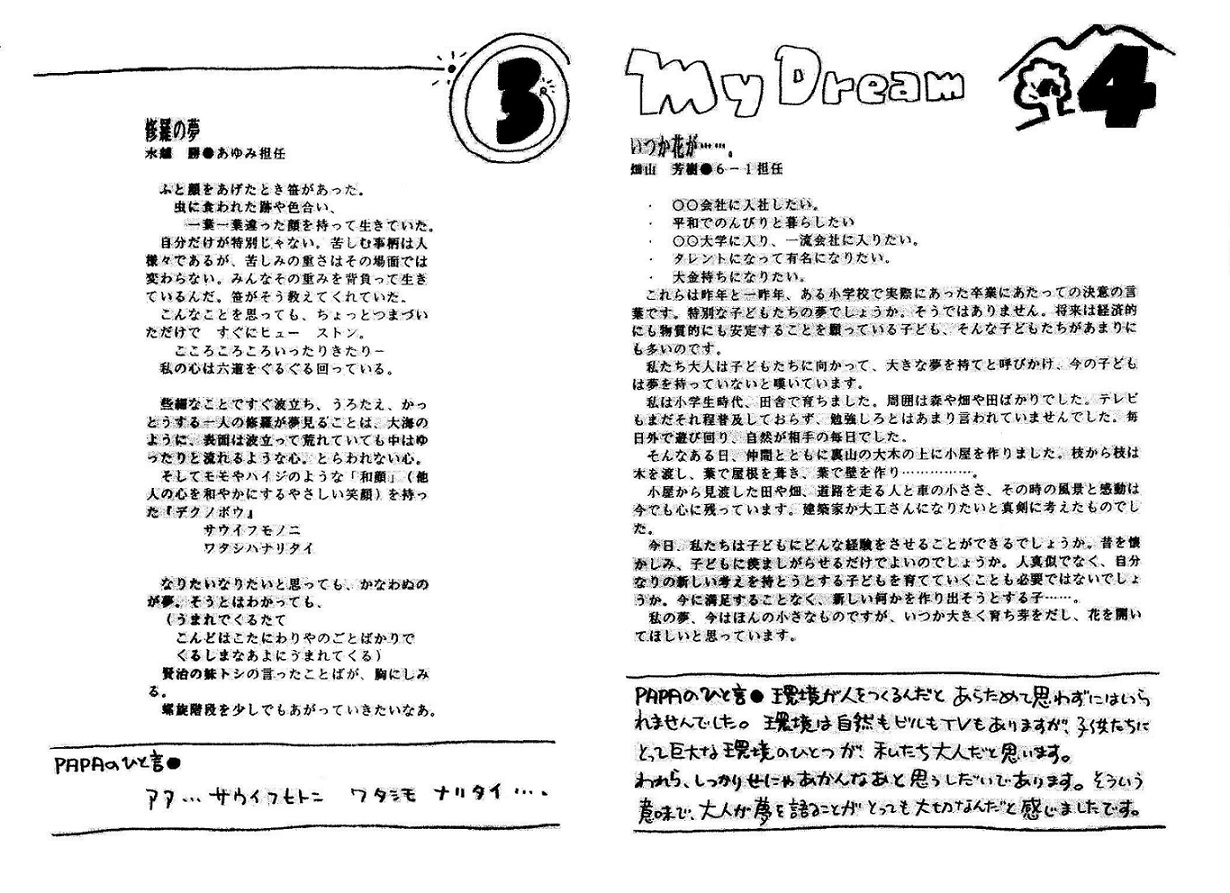 3
修羅の夢
水越　勝●あゆみ担任
ふと顔をあげたとき笹があった。
虫に食われた跡や色合い、
一葉一葉違った顔を持って生きていた。
自分だけが特別じゃない。苦しむ事柄は人
様々であるが、苦しみの重さはその場面では
変わらない。みんなその重みを背負って生き
ているんだ。笹がそう教えてくれていた。
こんなことを思っても、ちょっとつまづい
ただけで　すぐにヒュー　ストン。
こころころころいったりきたりー
私の心は六道をぐるぐる回っている。
些細なことですぐ波立ち、うろたえ、かっ
とうする一人の修羅が夢見ることは、大海の
ように、表面は波立って荒れていても中はゆ
ったりと流れるような心。とらわれない心。
そしてモモやハイジのような「和顔」（他
人の心を和やかにするやさしい笑顔）を持っ
た『デクノボウ』
サウイフモノニ
ワタシハナリタイ
なりたいなりたいと思っても、かなわぬの
が夢。そうとはわかっても、
（うまれてくるたて
こんどはこたにわりやのごとばかりで
くるしまなあよにうまれてくる）
賢治の妹トシの言ったことばが、胸にしみ
る。
螺旋階段を少しでもあがっていきたいなあ。
PAPAのひと言●
アア…サウイフヒトニ　ワタシモ　ナリタイ…．
My Dream 4
いつか花が……。
畑山　芳樹●6－1担任
・　○○会社に入社したい。
・　平和でのんびりと暮らしたい
・　○○大学に入り、一流会社に入りたい。
・　タレントになって有名になりたい。
・　大金持ちになりたい。
これらは昨年と一昨年、ある小学校で実際にあった卒業にあたっての決意の言
葉です。特別な子どもたちの夢でしょうか。そうではありません。将来は経済的
にも物質的にも安定することを願っている子ども、そんな子どもたちがあまりに
も多いのです。
私たち大人は子どもたちに向かって、大きな夢を持てと呼びかけ、今の子ども
は夢を持っていないと嘆いています。
私は小学生時代、田舎で育ちました。周囲は森や畑や田ばかりでした。テレビ
もまだそれ程普及しておらず、勉強しろとはあまり言われていませんでした。毎
日外で遊び回り、自然が相手の毎日でした。
そんなある日、仲間とともに裏山の大木の上に小屋を作りました。枝から枝は
木を渡し、葉で屋根を葺き、葉で壁を作り……………。
小屋から見渡した田や畑、道路を走る人と車の小ささ、その時の風景と感動は
今でも心に残っています。建築家か大工さんになりたいと真剣に考えたものでし
た。
今日、私たちは子どもにどんな経験をさせることができるでしょうか。昔を懐
かしみ、子どもに羨ましがらせるだけでよいのでしょうか。人真似でなく、自分
なりの新しい考えを持とうとする子どもを育てていくことも必要ではないでしょ
うか。今に満足することなく、新しい何かを作り出そうとする子……。
私の夢、今はほんの小さなものですが、いつか大きく育ち芽をだし、花を開い
てほしいと思っています。
PAPAのひと言●環境が人をつくるんだと あらためて思わずにはいら
れませんでした。環境は自然もビルもTVもありますが、子女たちに
とって巨大な環境のひとつが、私たち大人だと思います。
われら、しっかりせにゃあかんなあと思うしだいであります。そういう
意味で、大人が夢を語ることがとっても大切なんだと感じましたです。